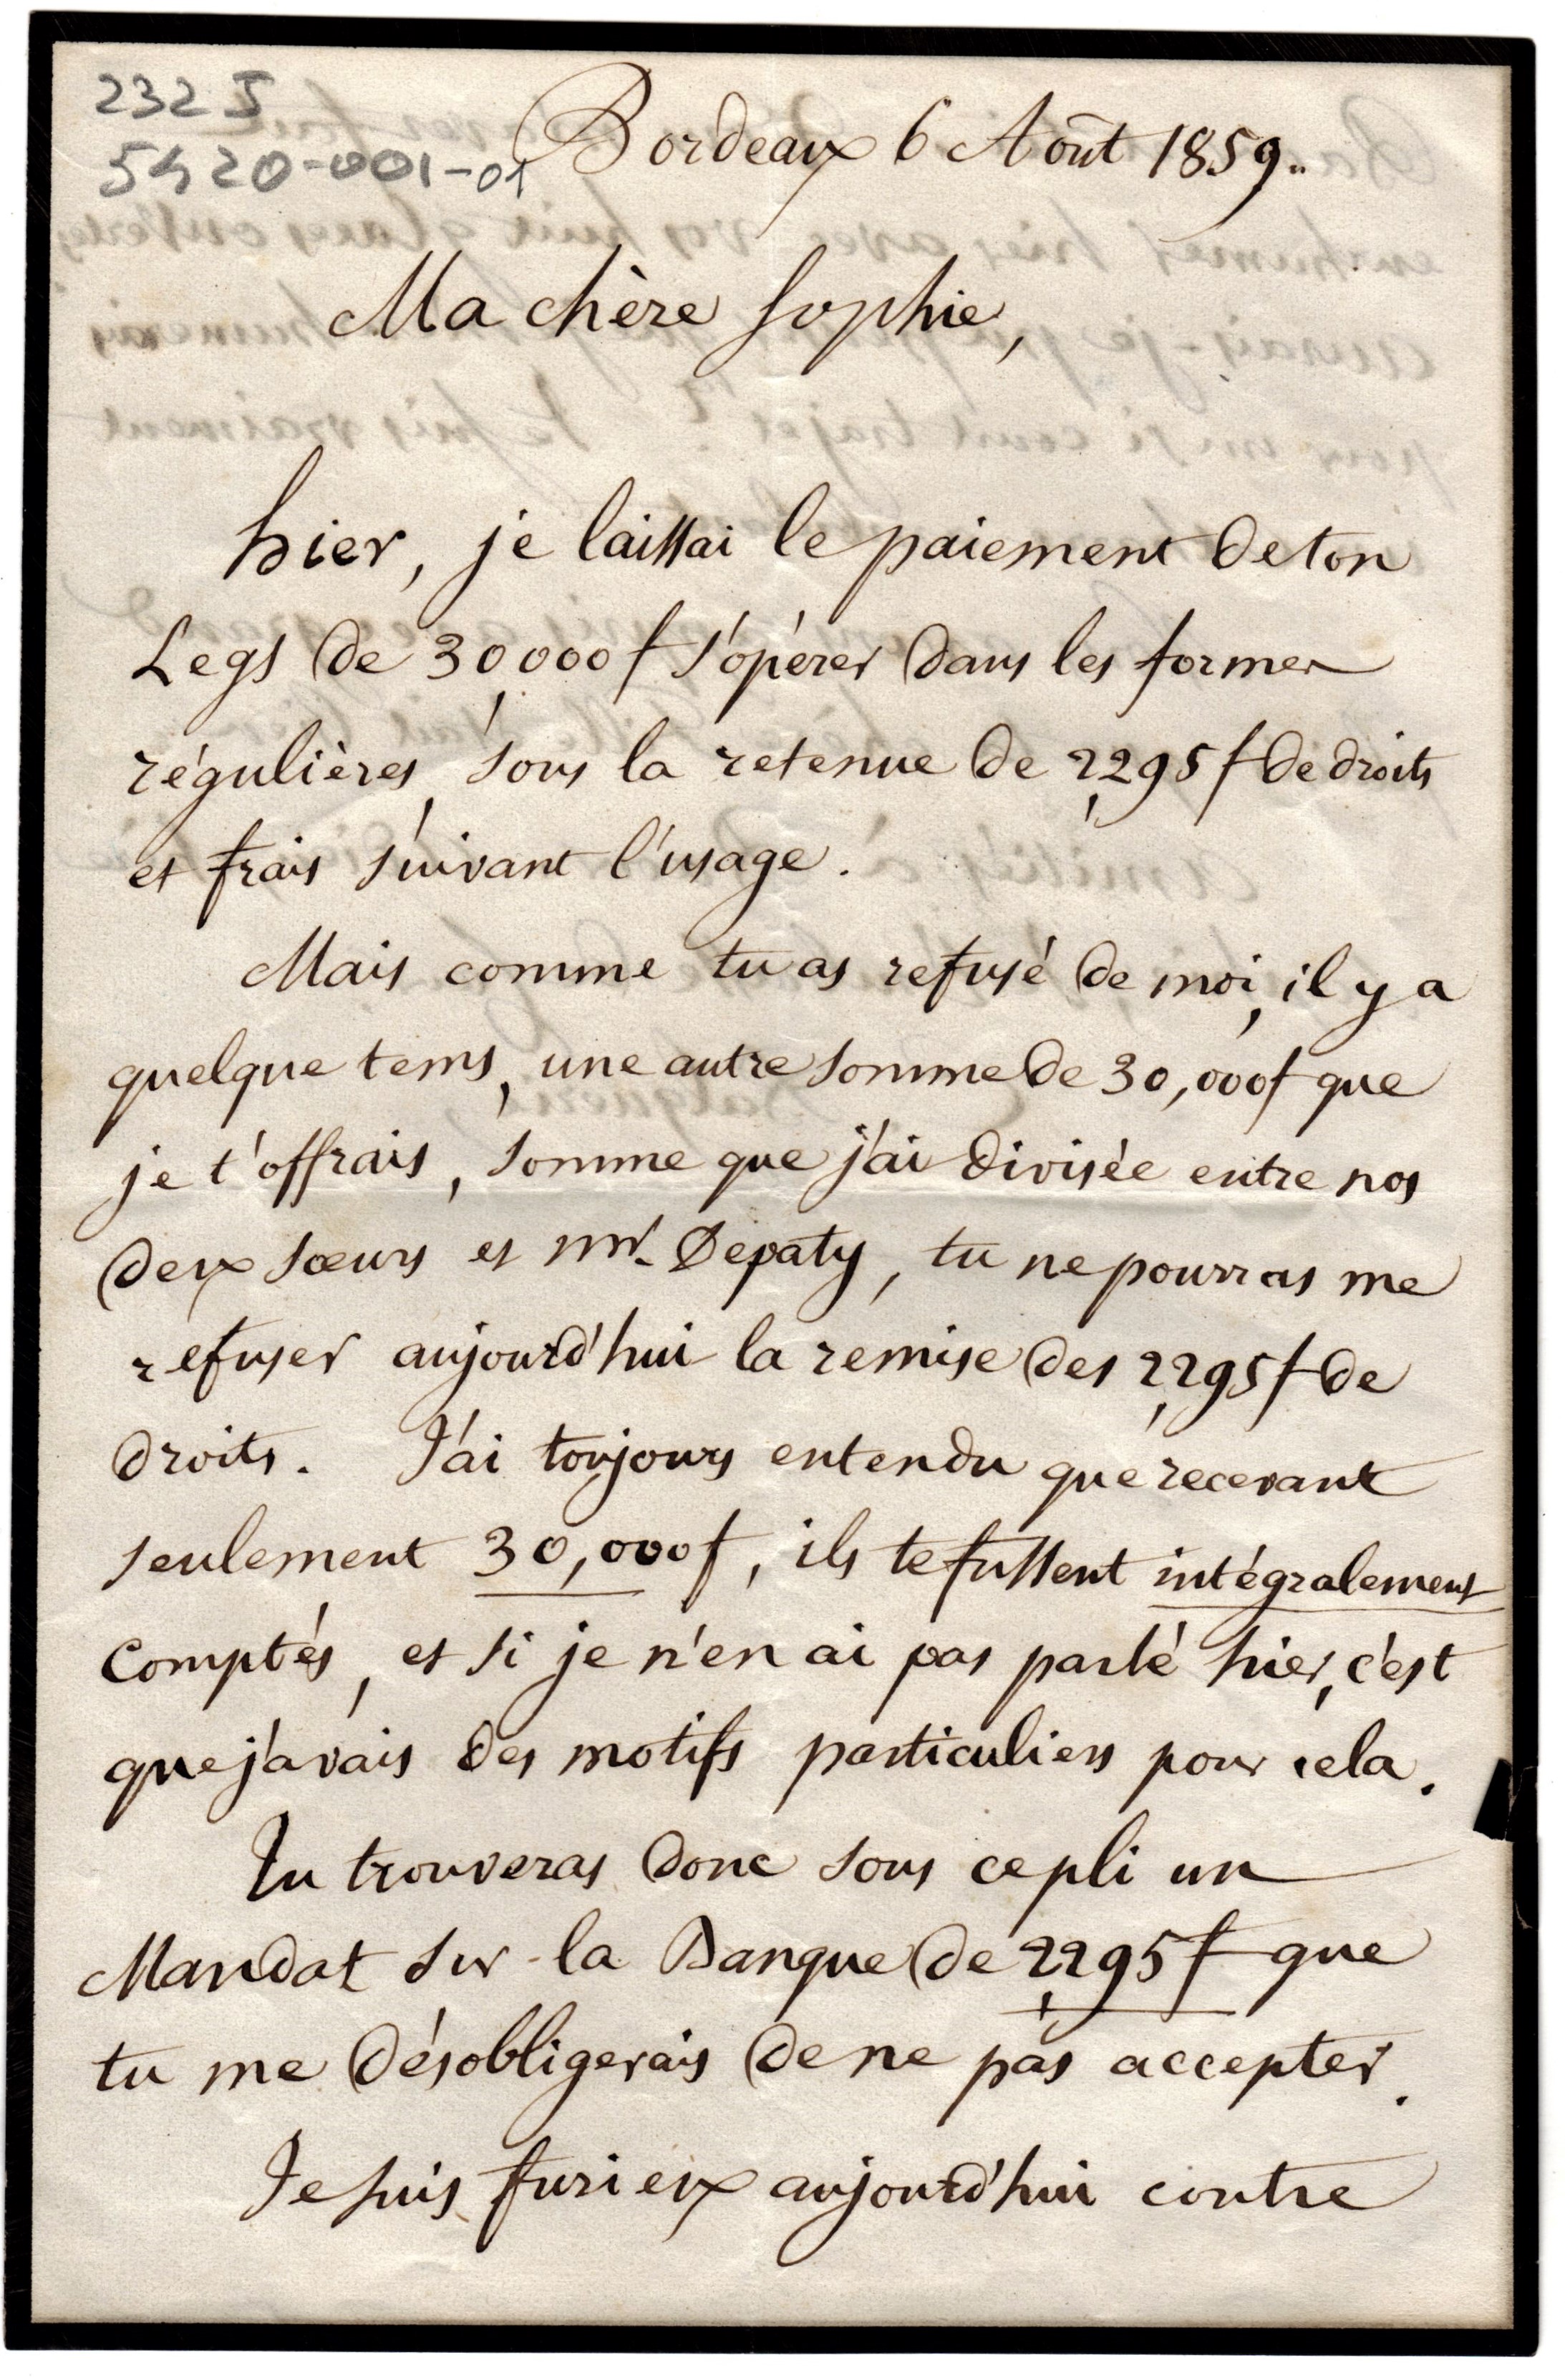 232 J
5420-001-01
Bordeaux 6 Août 1859.
Ma chère Sophie,
hier, je laissai le paiement de ton
Legs de 30,000 f s'opérer dans les formes
régulières, sous la retenue de 2,295 f de droits
et frais suivant l'usage.
Mais comme tu as refusé de moi, il y a
quelque tems, une autre somme de 30,000 f que
je t'offrais, somme que j'ai divisée entre nos
deux sœurs et Mr. Depaty, tu ne pourras me
refuser aujourd'hui la remise des 2,295 f de
droits. J'ai toujours entendu que recevant
seulement 30,000 f, ils te fussent intégralement
comptés, et si je n'en ai pas parlé hier, c'est
que j'avais des motifs particuliers pour cela.
Tu trouveras donc sous ce pli un
Mandat sur la Banque de 2,295 f que
tu me désobligerais de ne pas accepter.
Je suis furieux aujourd'hui contre